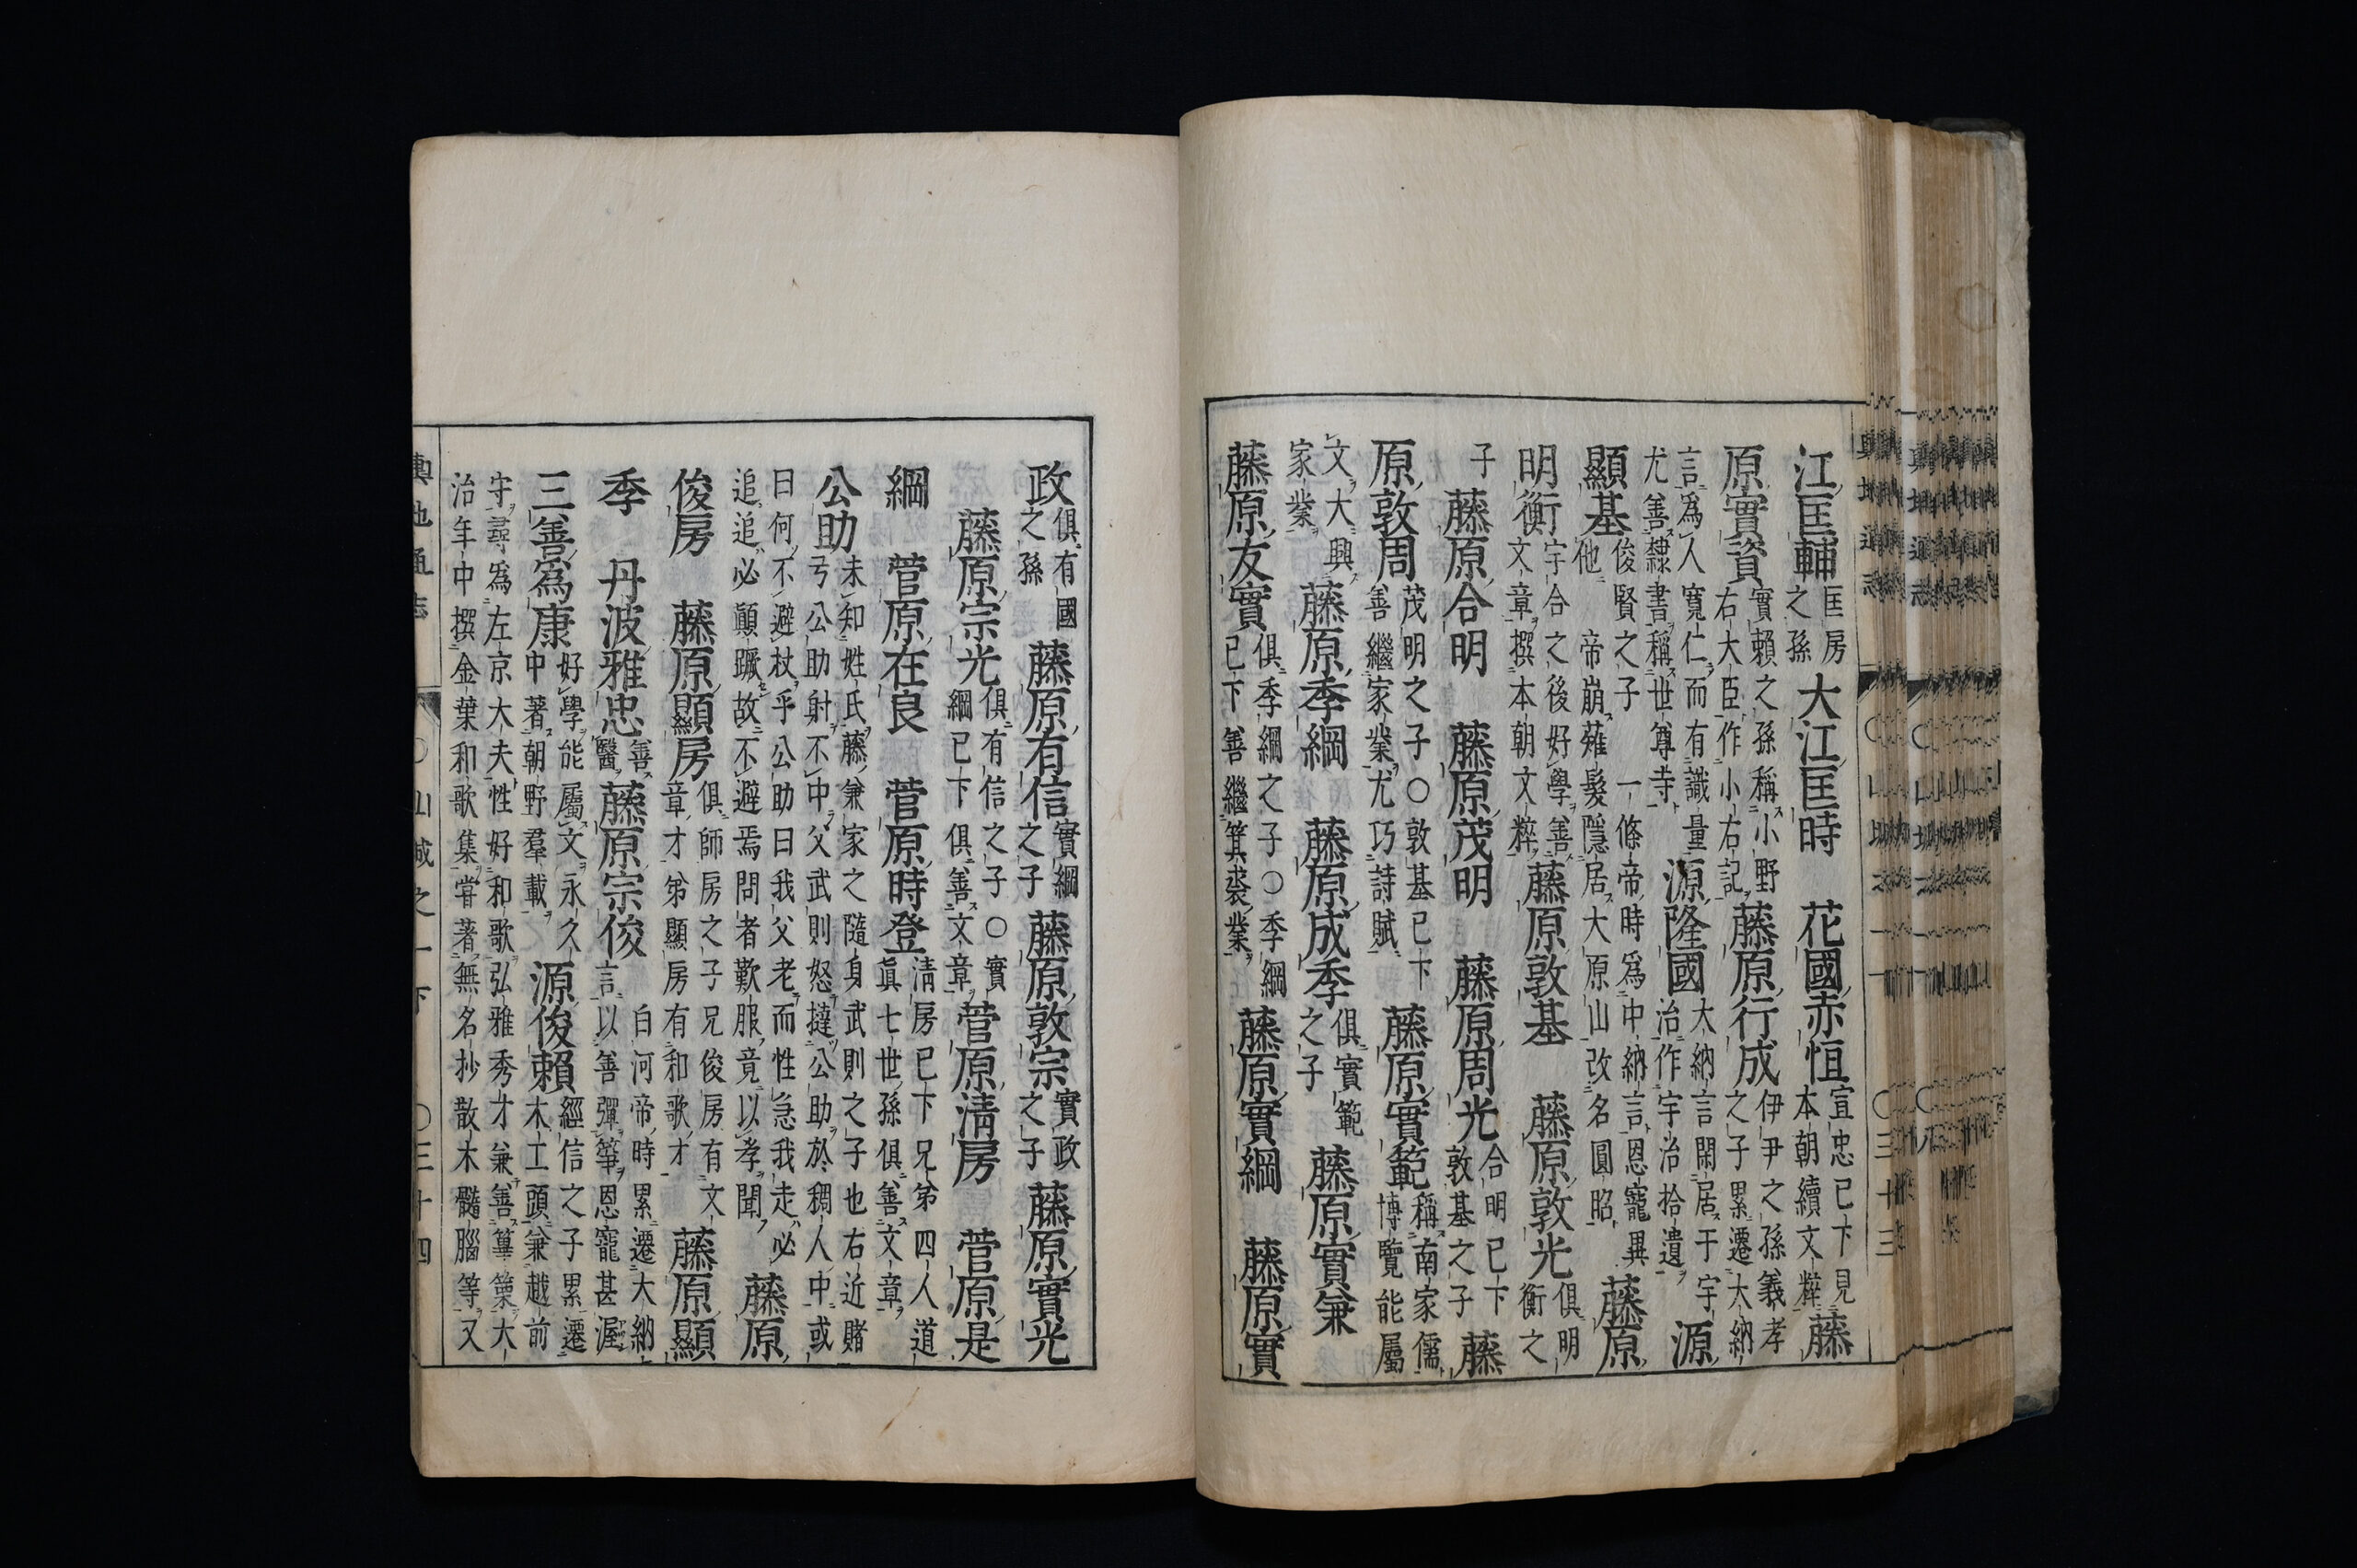 江匡輔匡房之孫 大江匡時 花國赤恒宣忠已下見本朝續文粹 藤
原實資實賴之孫稱小野右大臣作小右記 藤原行成伊尹之孫義孝之子累遷大納
言為人寬仁而有識量尤善隸書稱世尊寺 源隆國大納言閑居于宇治作宇治拾遺 源
顯基俊賢之子 一條帝時為中納言恩寵異他 帝崩薙髮隱居大原山改名圓昭 藤原
明衡宇合之後好學善文章撰本朝文粹 藤原敦基 藤原敦光俱明衡之
子 藤原合明 藤原茂明 藤原周光合明已下敦基之子 藤
原敦周茂明之子○敦基已下善繼家業尤巧詩賦 藤原實範稱南家儒博覽能屬
文大興家業 藤原季綱 藤原成季俱實範之子 藤原實兼
藤原友實俱季綱之子○季綱已下善繼箕裘業 藤原實綱 藤原實
輿地通志 ○山城之一下 ○三十三
政俱有國之孫 藤原有信實綱之子 藤原敦宗實政之子 藤原實光
藤原宗光俱有信之子○實綱已下俱善文章 菅原淸房 菅原是
綱 菅原在良 菅原時登淸房已下兄弟四人道眞七世孫俱善文章
公助未知姓氏藤兼家之隨身武則之子也右近賭弓公助射不中父武則怒撻公助於稠人中或
曰何不避杖乎公助曰我父老而性急我走必追追必顛蹶故不避焉問者歎服竟以孝聞 藤原
俊房 藤原顯房俱師房之子兄俊房有文章才弟顯房有和歌才 藤原顯
季 丹波雅忠善醫 藤原宗俊白河帝時累遷大納言以善彈箏恩寵甚渥
三善為康好學能屬文永久中著朝野羣載 源俊賴經信之子累遷木工頭兼越前
守尋為左京大夫性好和歌弘雅秀才兼善篳篥大治年中撰金葉和歌集嘗著無名抄散木髓腦等又
輿地通志 ○山城之一下 ○三十四